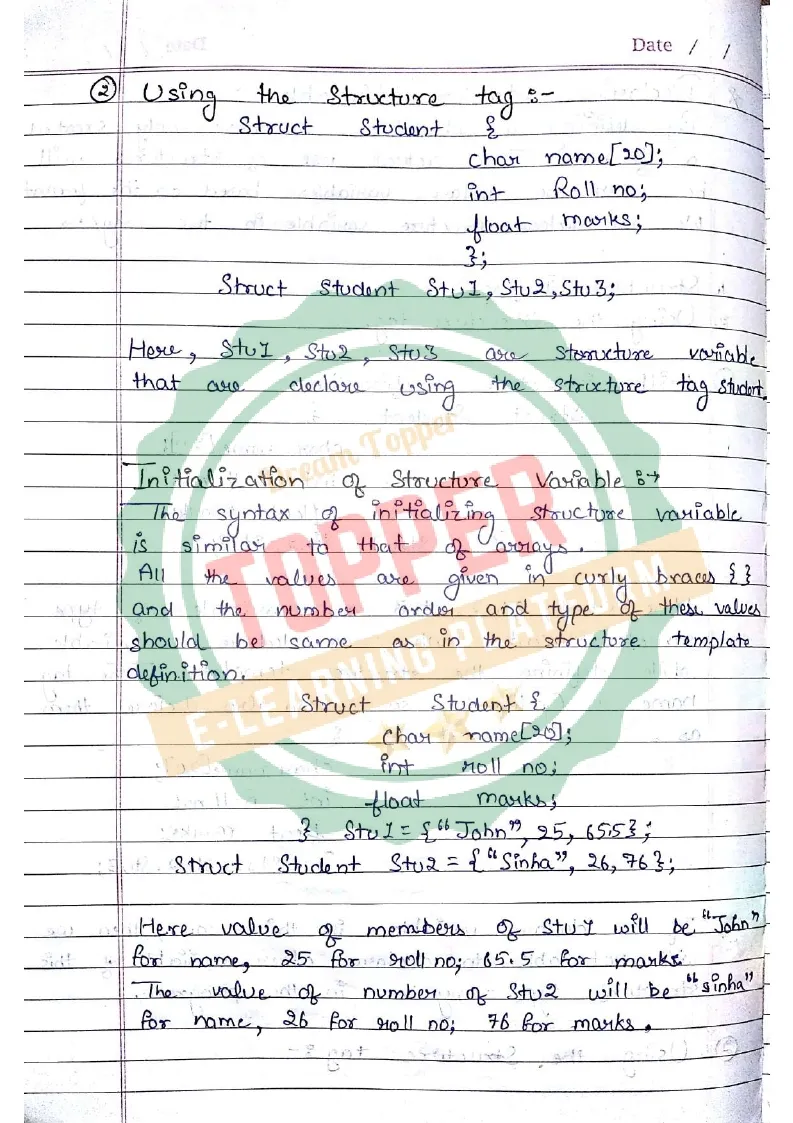 Date / /
② Using the Structure tag :-
Struct Student {
char name[20];
int Roll no;
float marks;
};
Struct Student Stu1, Stu2, Stu3;
Here, Stu1, Stu2, Stu3 are structure variable
that are declare using the structure tag student.
Initialization of Structure Variable :→
The syntax of initializing structure variable
is similar to that of arrays.
All the values are given in curly braces { }
and the number order and type of these values
should be same as in the structure template
definition.
Struct Student {
char name[20];
int roll no;
float marks;
} Stu1 = {"John", 25, 65.5};
Struct Student Stu2 = {"Sinha", 26, 76};
Here value of members of Stu1 will be "John"
for name, 25 for roll no; 65.5 for marks
The value of number of Stu2 will be "sinha"
for name, 26 for roll no; 76 for marks.
Dream Topper
TOPPER
E-LEARNING PLATFORM